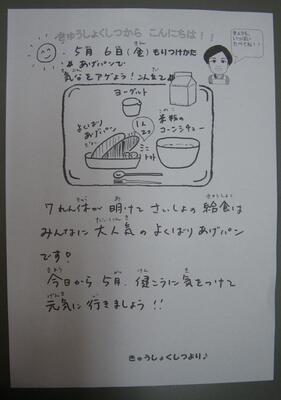 きゅうしょくしつから こんにちは！！
5月 6日(金)もりつけかた
きん
あげパンで
気分をアゲよう！こんだて
きぶん
ヨーグルト
よくばり
あげパン
1人
2コ
ミニ
トマト
米粉の
コーンシチュー
7れん休が 明けて さいしょの 給食は
きゅう あ きゅうしょく
みんなに 大人気の よくばり あげパン
だいにんき
です！
今日から 5月、健こうに 気をつけて
きょう がつ けん き
元気に 行きましょう！！
げんき い
きゅうしょくしつより♪